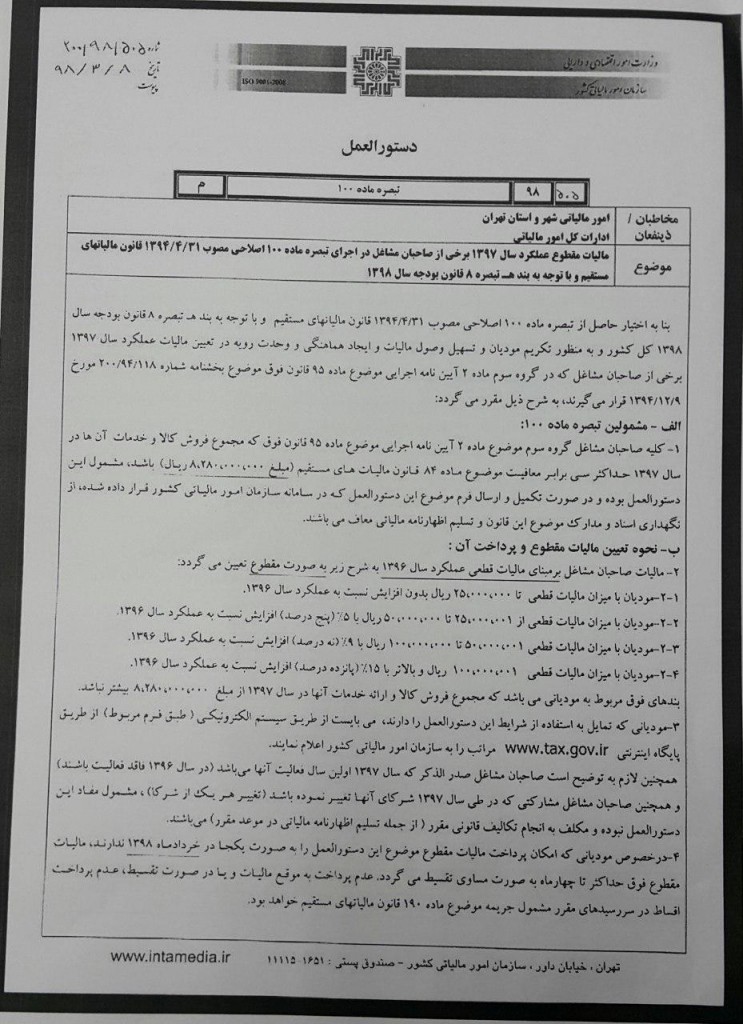 شماره ۲۰۰/۹۸/۵۰۵
تاریخ ۹۸/۳/۸
پیوست
وزارت امور اقتصادی و دارایی
سازمان امور مالیاتی کشور
ISO 9001-2008
دستورالعمل
۵۰۵ ۹۸ تبصره ماده ۱۰۰ م
مخاطبان / ذینفعان
امور مالیاتی شهر و استان تهران
ادارات کل امور مالیاتی
موضوع
مالیات مقطوع عملکرد سال ۱۳۹۷ برخی از صاحبان مشاغل در اجرای تبصره ماده ۱۰۰ اصلاحی مصوب ۱۳۹۴/۴/۳۱ قانون مالیاتهای
مستقیم و با توجه به بند هـ تبصره ۸ قانون بودجه سال ۱۳۹۸
بنا به اختیار حاصل از تبصره ماده ۱۰۰ اصلاحی مصوب ۱۳۹۴/۴/۳۱ قانون مالیاتهای مستقیم و با توجه به بند هـ تبصره ۸ قانون بودجه سال
۱۳۹۸ کل کشور و به منظور تکریم مودیان و تسهیل وصول مالیات و ایجاد هماهنگی و وحدت رویه در تعیین مالیات عملکرد سال ۱۳۹۷
برخی از صاحبان مشاغل که در گروه سوم ماده ۲ آیین نامه اجرایی موضوع ماده ۹۵ قانون فوق موضوع بخشنامه شماره ۲۰۰/۹۴/۱۱۸ مورخ
۱۳۹۴/۱۲/۹ قرار می‌گیرند، به شرح ذیل مقرر می گردد:
الف - مشمولین تبصره ماده ۱۰۰:
۱- کلیه صاحبان مشاغل گروه سوم موضوع ماده ۲ آیین نامه اجرایی موضوع ماده ۹۵ قانون فوق که مجموع فروش کالا و خدمات آن ها در
سال ۱۳۹۷ حداکثر سی برابر معافیت موضوع ماده ۸۴ قانون مالیات های مستقیم (مبلغ ۸,۲۸۰,۰۰۰,۰۰۰ ریال) باشد، مشمول این
دستورالعمل بوده و در صورت تکمیل و ارسال فرم موضوع این دستورالعمل که در سامانه سازمان امور مالیاتی کشور قرار داده شده، از
نگهداری اسناد و مدارک موضوع این قانون و تسلیم اظهارنامه مالیاتی معاف می باشند.
ب- نحوه تعیین مالیات مقطوع و پرداخت آن :
۲- مالیات صاحبان مشاغل برمبنای مالیات قطعی عملکرد سال ۱۳۹۶ به شرح زیر به صورت مقطوع تعیین می گردد:
۲-۱-مودیان با میزان مالیات قطعی تا ۲۵,۰۰۰,۰۰۰ ریال بدون افزایش نسبت به عملکرد سال ۱۳۹۶.
۲-۲-مودیان با میزان مالیات قطعی از ۲۵,۰۰۰,۰۰۱ تا ۵۰,۰۰۰,۰۰۰ ریال با ۵٪ (پنج درصد) افزایش نسبت به عملکرد سال ۱۳۹۶.
۲-۳-مودیان با میزان مالیات قطعی ۵۰,۰۰۰,۰۰۱ تا ۱۰۰,۰۰۰,۰۰۰ ریال با ۹٪ (نه درصد) افزایش نسبت به عملکرد سال ۱۳۹۶.
۲-۴-مودیان با میزان مالیات قطعی ۱۰۰,۰۰۰,۰۰۱ ریال و بالاتر با ۱۵٪ (پانزده درصد) افزایش نسبت به عملکرد سال ۱۳۹۶.
بندهای فوق مربوط به مودیانی می باشد که مجموع فروش کالا و ارائه خدمات آنها در سال ۱۳۹۷ از مبلغ ۸,۲۸۰,۰۰۰,۰۰۰ بیشتر نباشد.
۳-مودیانی که تمایل به استفاده از شرایط این دستورالعمل را دارند، می بایست از طریق سیستم الکترونیکی ( طبق فرم مربوط) از طریق
پایگاه اینترنتی www.tax.gov.ir مراتب را به سازمان امور مالیاتی کشور اعلام نمایند.
همچنین لازم به توضیح است صاحبان مشاغل صدر الذکر که سال ۱۳۹۷ اولین سال فعالیت آنها می‌باشد (در سال ۱۳۹۶ فاقد فعالیت باشند)
و همچنین صاحبان مشاغل مشارکتی که در طی سال ۱۳۹۷ شرکای آنها تغییر نموده باشد (تغییر هر یک از شرکا) ، مشمول مفاد این
دستورالعمل نبوده و مکلف به انجام تکالیف قانونی مقرر ( از جمله تسلیم اظهارنامه مالیاتی در موعد مقرر) می‌باشند.
۴-درخصوص مودیانی که امکان پرداخت مالیات مقطوع موضوع این دستورالعمل را به صورت یکجا در خردادماه ۱۳۹۸ ندارند، مالیات
مقطوع فوق حداکثر تا چهارماه به صورت مساوی تقسیط می گردد. عدم پرداخت به موقع مالیات و یا در صورت تقسیط، عدم پرداخت
اقساط در سررسیدهای مقرر مشمول جریمه موضوع ماده ۱۹۰ قانون مالیاتهای مستقیم خواهد بود.
تهران، خیابان داور ، سازمان امور مالیاتی کشور - صندوق پستی : ۱۶۵۱-۱۱۱۱۵ www.intamedia.ir